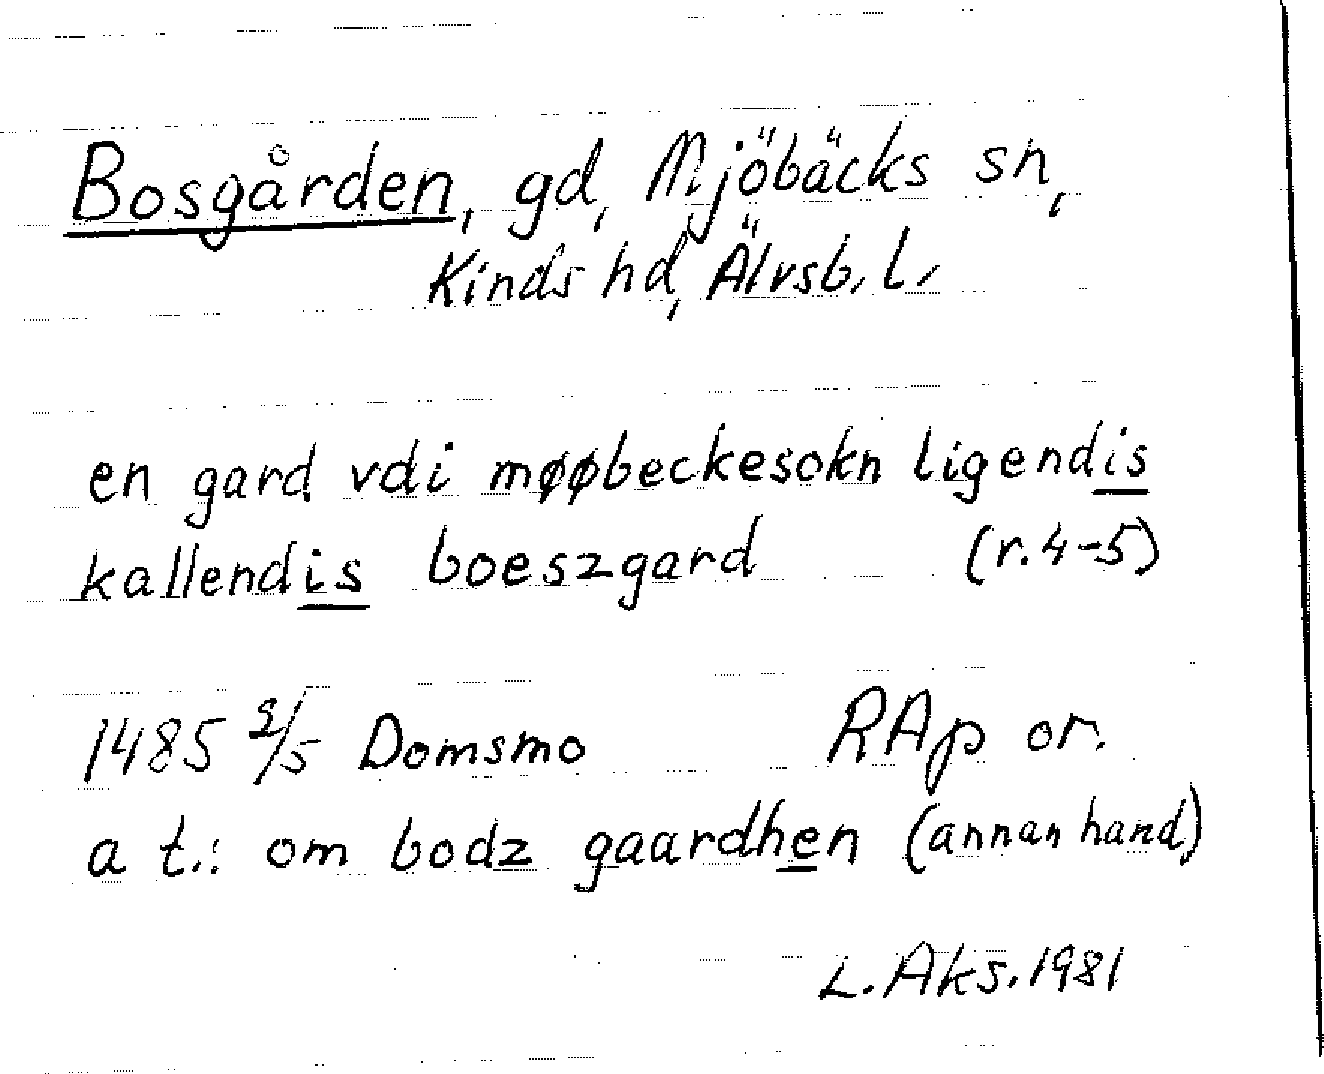 Bosgården, gd, Mjöbäcks sn,
Kinds hd, Älvsb. l.
en gard vdi møøbeckesokn ligendis
kallendis boeszgard (r. 4-5)
1485 2/5 Domsmo RAp or.
a t.: om bodz gaardhen (annan hand)
L. Aks. 1981